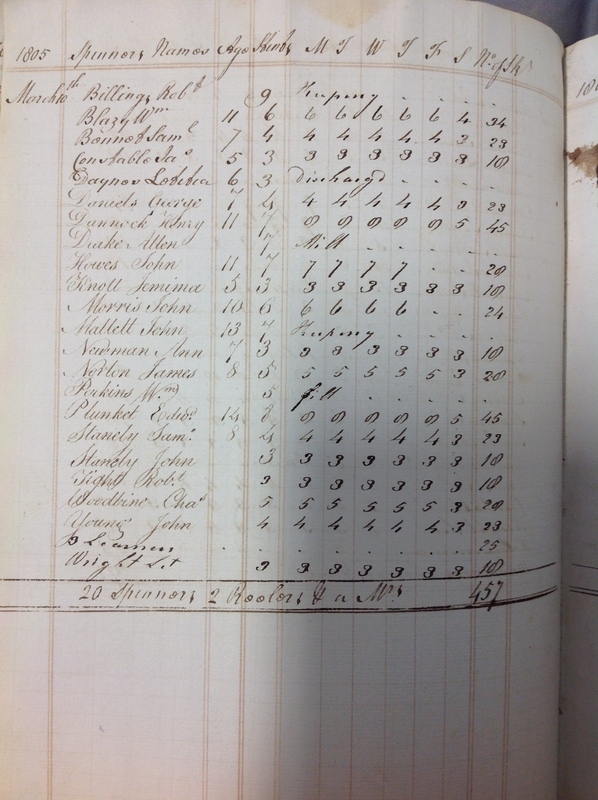 1805 Spinners Names Age Skeins M T W T F S No. of Sk
March 10th Billings Robt 9 Keeping . . . .
Blazy Wm 11 6 6 6 6 6 6 4 34
Bennet Saml 7 4 4 4 4 4 4 3 23
Constable Jas 5 3 3 3 3 3 3 3 18
Daynes Letitia 6 3 dischargd . . . .
Daniels George 7 4 4 4 4 4 4 3 23
Dannock Henry 11 7 8 8 8 8 8 5 45
Drake Allen 7 Ill . . . . .
Howes John 11 7 7 7 7 7 . . 28
Knott Jemima 5 3 3 3 3 3 3 3 18
Morris John 10 6 6 6 6 6 . . 24
Mallett John 13 7 Keeping . . . .
Newman Ann 7 3 3 3 3 3 3 3 18
Norton James 8 5 5 5 5 5 5 3 28
Perkins Wm 5 ill . . . . .
Plunket Edwd 14 8 8 8 8 8 8 5 45
Stanely Saml 8 4 4 4 4 4 4 3 23
Stanely John 3 3 3 3 3 3 3 18
Tight Robt 3 3 3 3 3 3 3 18
Woodbine Chas 5 5 5 5 5 5 3 28
Young John 4 4 4 4 4 4 3 23
. . . . . . . . 25
Wright 3 3 3 3 3 3 3 18
20 Spinners 2 Reelers & a Mrs 457